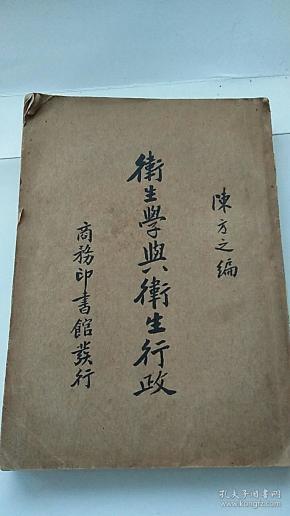 陳方之編
衛生學與衛生行政
商務印書館發行
孔夫子旧书网
www.kongfz.com